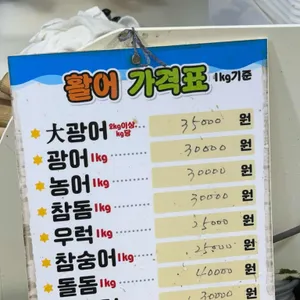 활어 가격표 1kg기준
大광어 2kg이상 kg당 35000 원
광어 1kg 30000 원
농어 1kg 30000 원
참돔 1kg 30000 원
우럭 1kg 25000 원
참숭어 1kg 25000 원
돌돔 1kg 40000 원
30000